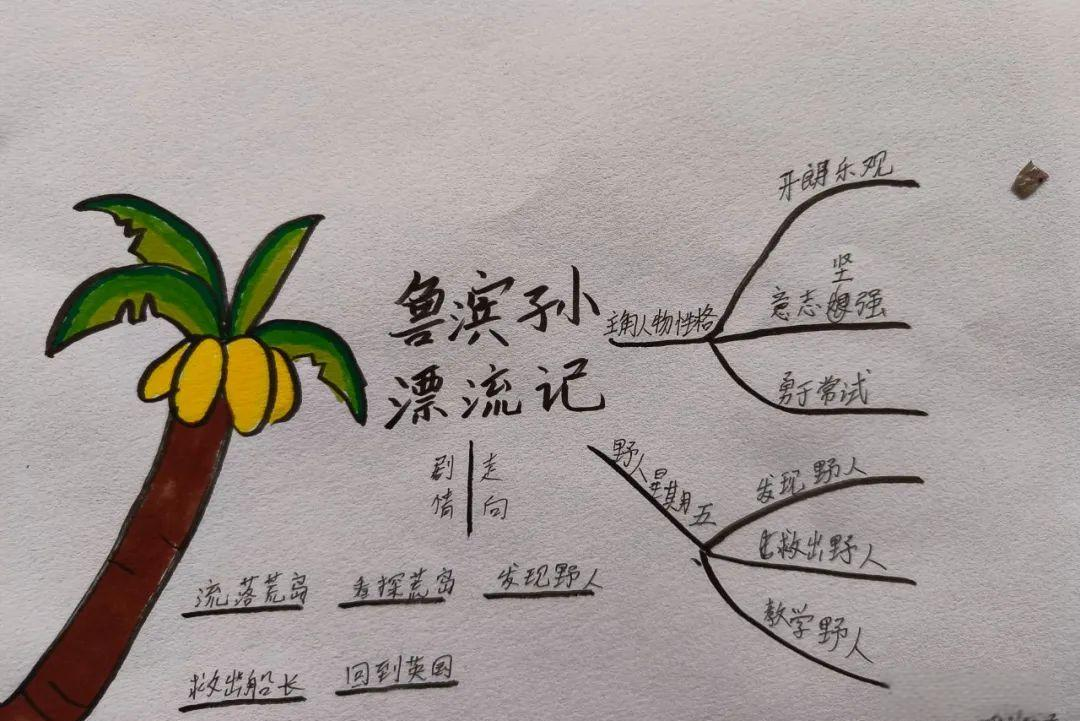 鲁滨孙
漂流记
主角人物性格
开朗乐观
意志坚强
勇于常试
野人星期五
发现野人
救出野人
教学野人
剧情
走向
流落荒岛
探荒岛
发现野人
救出船长
回到英国